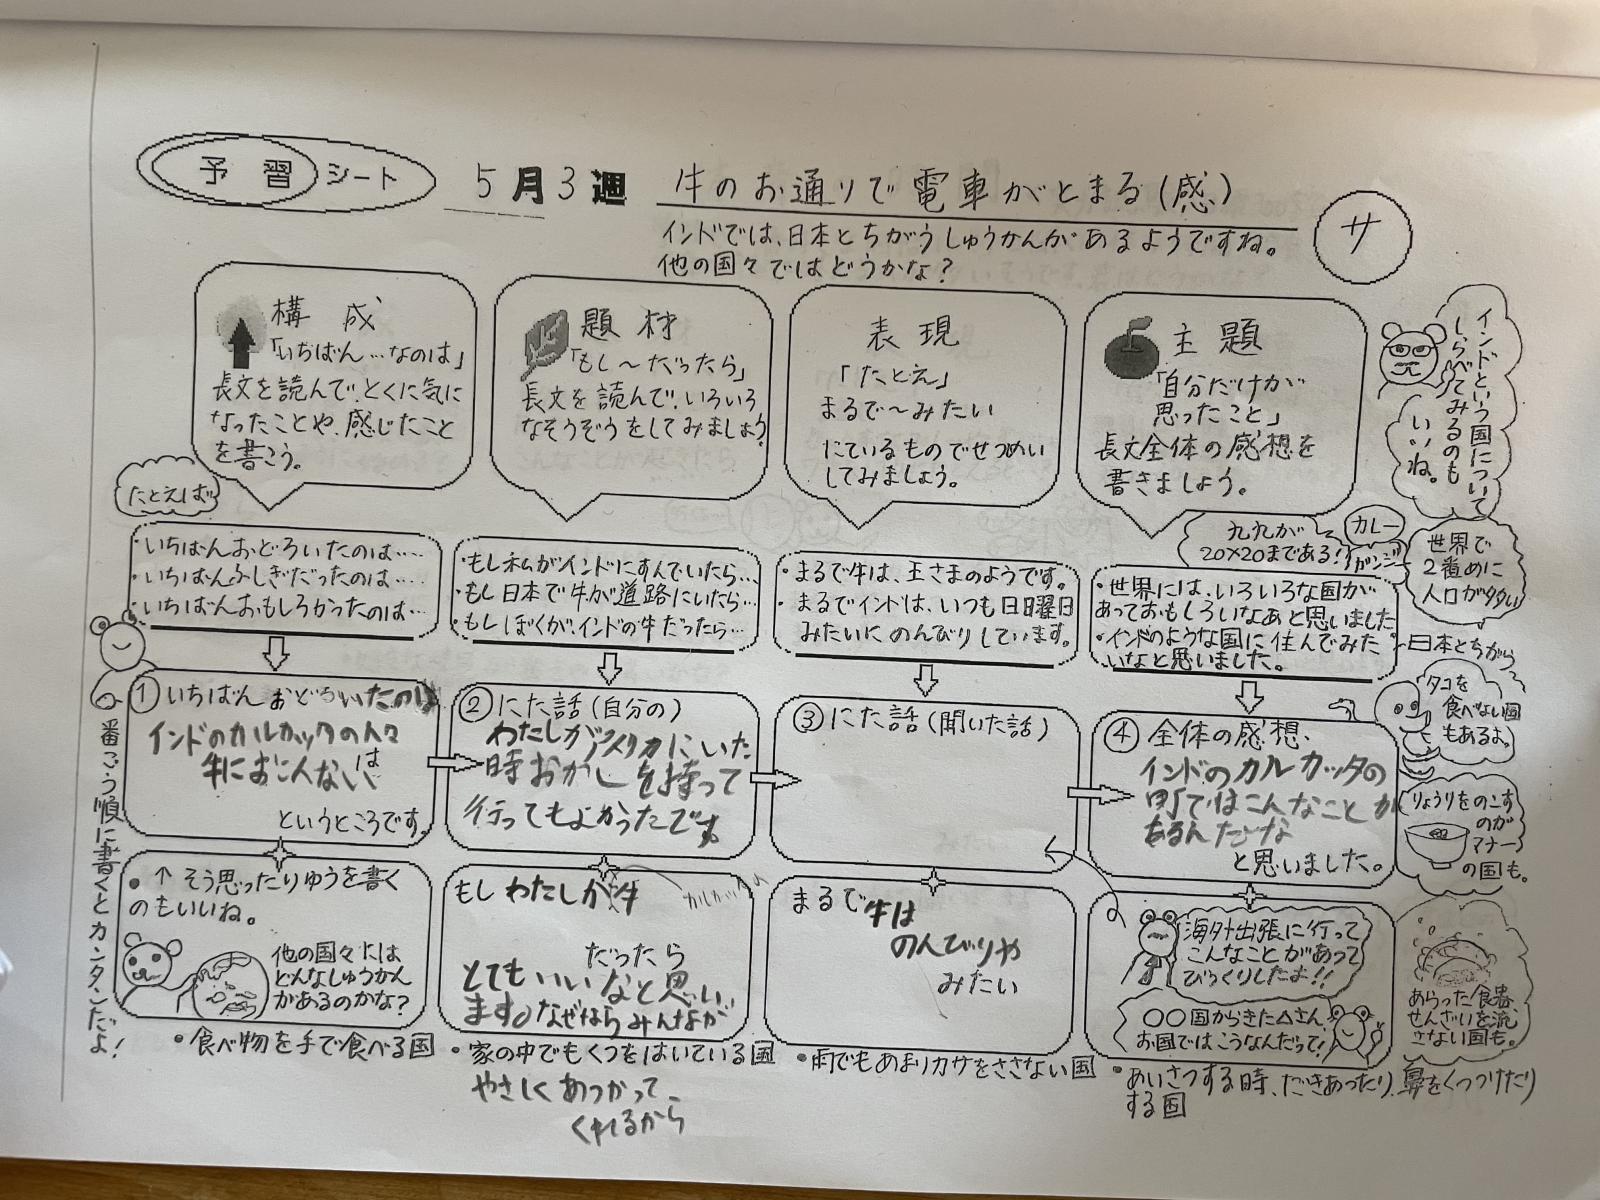 予習シート
5月3週 牛のお通りで電車がとまる(感)
サ
インドでは、日本とちがうしゅうかんがあるようですね。
他の国々ではどうかな？
構成
「いちばん…なのは」
長文を読んで、とくに気に
なったことや、感じたこと
を書こう。
題材
「もし〜だったら」
長文を読んで、いろいろ
なそうぞうをしてみましょう
表現
「たとえ」
まるで〜みたい
にているものでせつめい
してみましょう。
主題
「自分だけが
思ったこと」
長文全体の感想を
書きましょう。
インドという国について
しらべてみるのも
いいね。
たとえば
・いちばんおどろいたのは……
・いちばんふしぎだったのは……
・いちばんおもしろかったのは…
・もし私がインドにすんでいたら…
・もし日本で牛が道路にいたら…
・もしぼくが、インドの牛だったら…
・まるで牛は、王さまのようです。
・まるでインドは、いつも日曜日
みたいにのんびりしています。
九九が
20×20まである！
カレー
ガンジー
・世界には、いろいろな国が
あっておもしろいなあと思いました
・インドのような国に住んでみた
いなと思いました。
世界で
2番めに
人口が多い
日本とちがう
①いちばんおどろいたのは
インドのカルカッタの人々は
牛におこんない
というところです。
②にた話(自分の)
わたしがアメリカにいた
時おかしを持って
行ってもよかったです
③にた話(聞いた話)
④全体の感想、
インドのカルカッタの
町ではこんなことが
あるんだな
と思いました。
タコを
食べない国
もあるよ。
りょうりをのこす
のが
マナー
の国も。
番ごう順に書くとカンタンだよ！
↑そう思ったりゆうを書く
のもいいね。
他の国々には
どんなしゅうかん
があるのかな？
もしわたしが牛
カルカッタの
だったら
とてもいいなと思い
ます。なぜならみんなが
やさしくあつかって
くれるから
まるで牛は
のんびりや
みたい
海外出張に行って
こんなことがあって
びっくりしたよ！！
〇〇国からきた△さん、
お国ではこうなんだって！
あらった食器、
せんざいを流
さない国も。
・食べ物を手で食べる国
・家の中でもくつをはいている国
・雨でもあまりカサをささない国
・あいさつする時、だきあったり、鼻をくっつけたり
する国